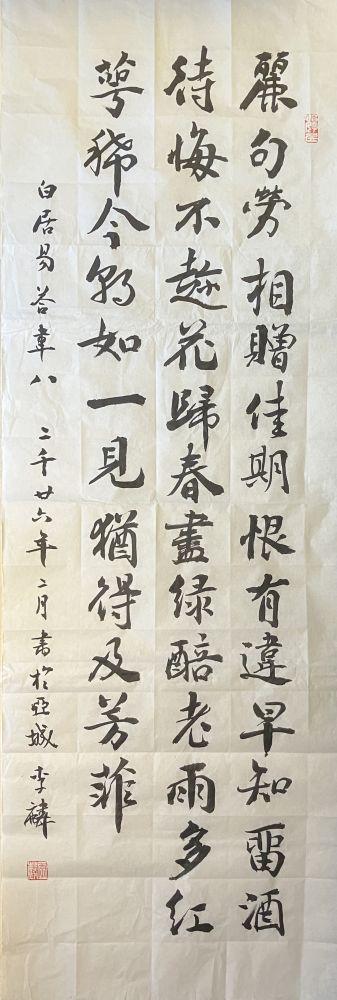 麗句勞相贈佳期恨有違早知畱酒
待悔不趂花歸春盡緑醅老雨多紅
蕚稀今朝如一見猶得及芳菲
白居易荅韋八 二千廿六年二月書於亞城 李麟